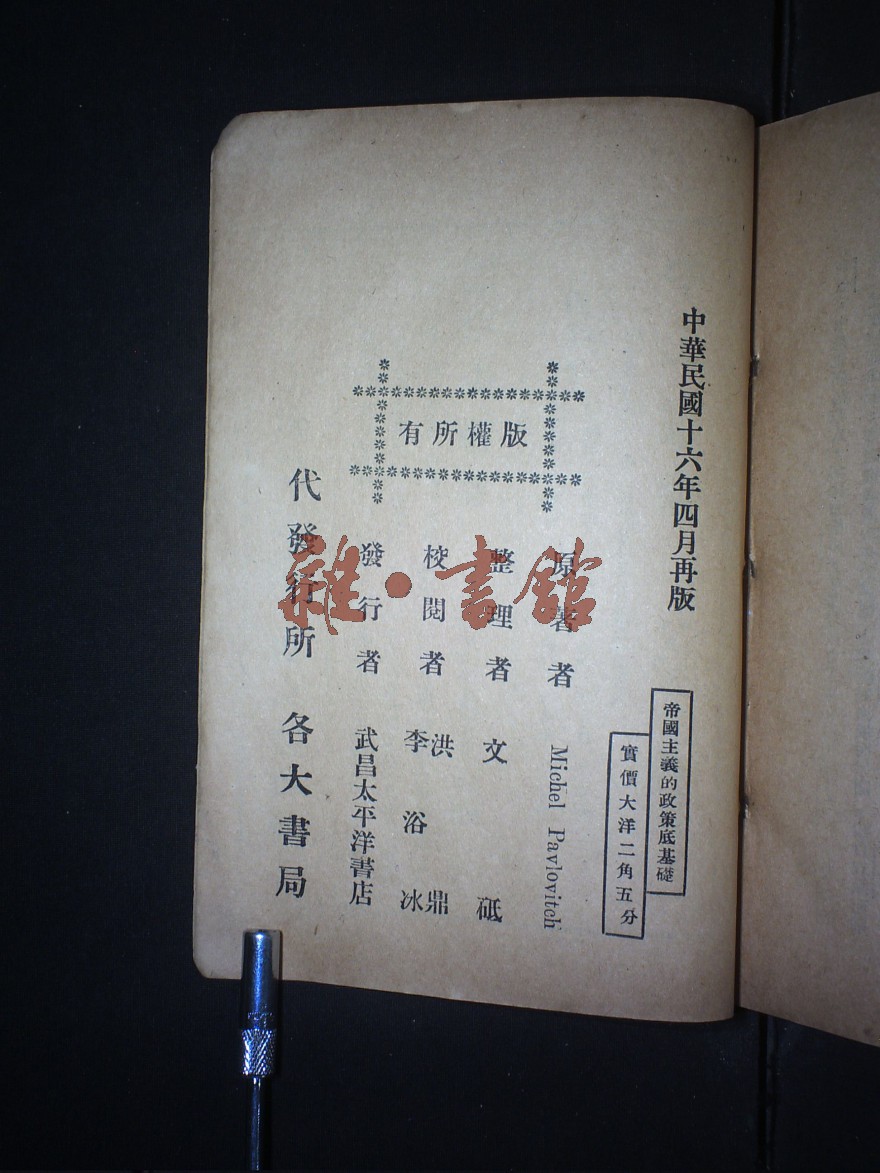 中華民國十六年四月再版
帝國主義的政策底基礎
實價大洋二角五分
版權所有
原著者 Michel Pavlovitch
整理者 文砥
校閱者 洪鼎
李浴冰
發行者 武昌太平洋書店
代發行所 各大書局
雜·書館